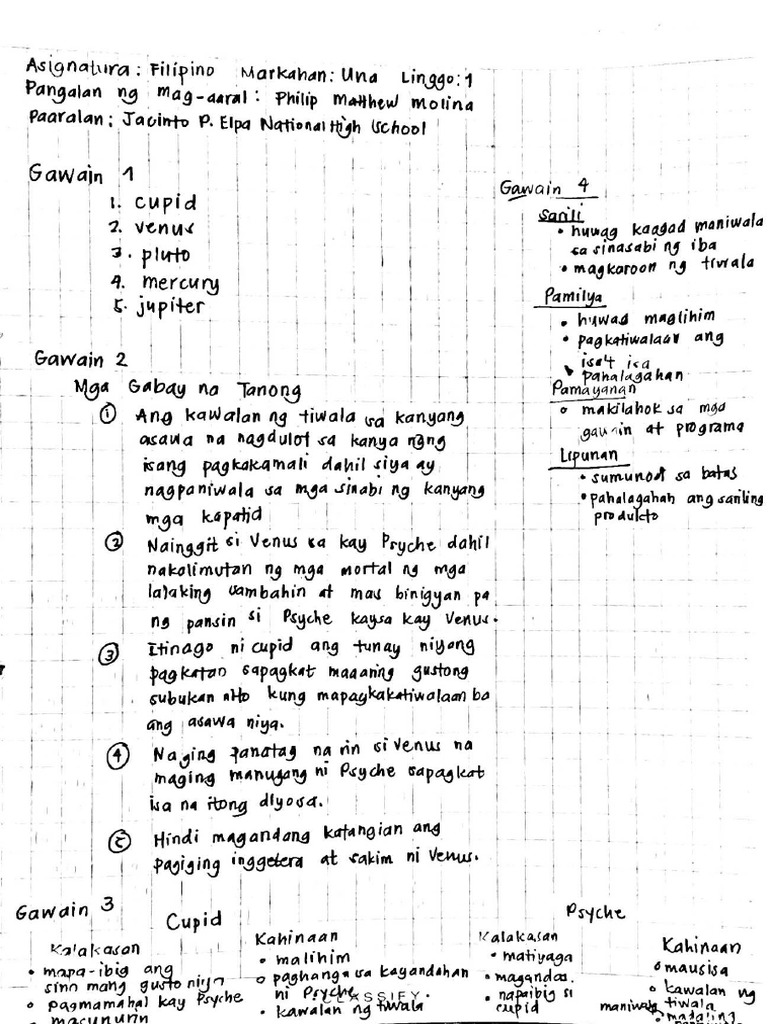 Asignatura: Filipino Markahan: Una Linggo: 1
Pangalan ng mag-aaral: Philip Matthew Molina
Paaralan: Jacinto P. Elpa National High School
Gawain 1
1. cupid
2. venus
3. pluto
4. mercury
5. jupiter
Gawain 2
Mga Gabay na Tanong
① Ang kawalan ng tiwala sa kanyang
asawa na nagdulot sa kanya ng
isang pagkakamali dahil siya ay
nagpaniwala sa mga sinabi ng kanyang
mga kapatid
② Nainggit si Venus sa kay Psyche dahil
nakolimutan ng mga mortal ng mga
lalaking sambahin at mas binigyan pa
ng pansin si Psyche kaysa kay Venus.
③ Itinago ni cupid ang tunay niyang
pagkatao sapagkat maaaring gustong
subukan nito kung mapagkakatiwalaan ba
ang asawa niya.
④ Naging panatag na rin si Venus na
maging manugang ni Psyche sapagkat
isa na itong diyosa.
⑤ Hindi magandang katangian ang
pagiging inggetera at sakim ni Venus.
Gawain 3
Cupid
Kalakasan
• mapa-ibig ang
sino mang gusto niya
• pagmamahal kay Psyche
• masunurin
Kahinaan
• malihim
• paghanga sa kagandahan
ni Psyche
• kawalan ng tiwala
Psyche
Kalakasan
• matiyaga
• maganda
• napaibig si
cupid
Kahinaan
• mausisa
• kawalan ng
tiwala
maniwala
CLASSIFY
Gawain 4
Sarili
• huwag kaagad maniwala
sa sinasabi ng iba
• magkaroon ng tiwala
Pamilya
• huwag maglihim
• pagkatiwalaan ang
isa't isa
• pahalagahan
Pamayanan
• makilahok sa mga
gawain at programa
Lipunan
• sumunod sa batas
• pahalagahan ang sariling
produkto